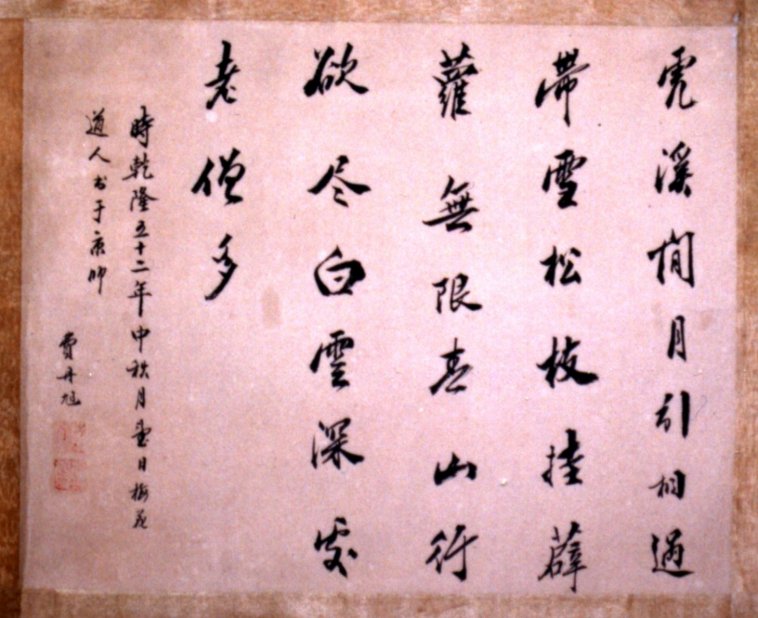 虎溪閒月引相過
帶雪松枝挂薜
蘿無限青山行
欲尽白雲深處
老僧多
時乾隆五十二年中秋月日梅花
道人书于京師
費丹旭